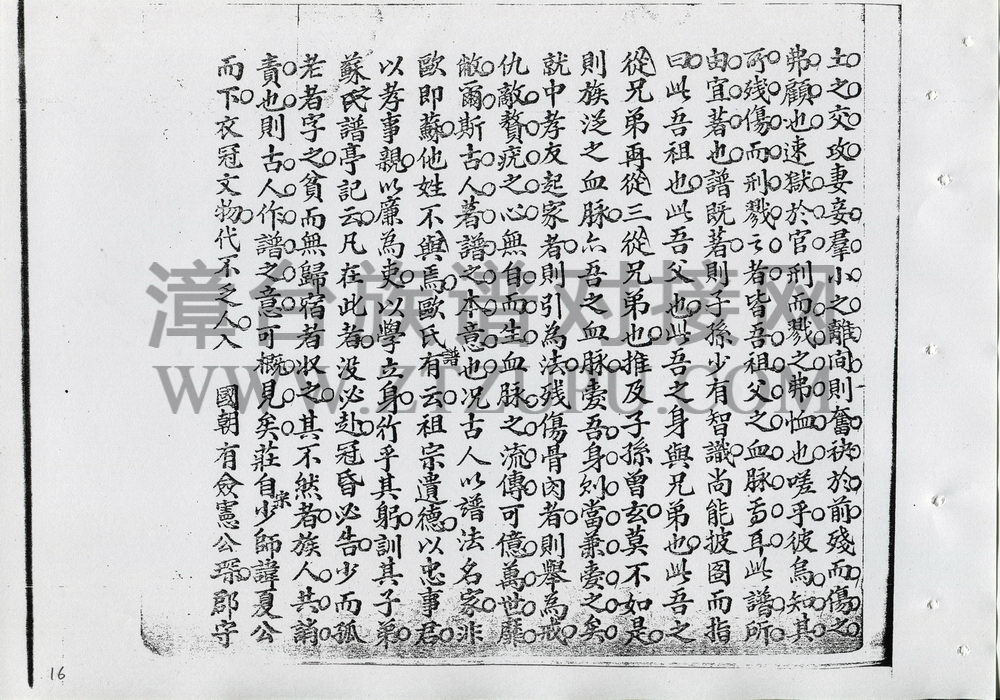 土之交攻妻妾羣小之離间則奮袂於前殘而傷之
弗顧也速獄於官刑而戮之弗恤也嗟乎彼烏知其
所残傷而刑戮之者皆吾祖父之血脉焉耳此譜所
由宜著也譜既著則子孫少有智識尚能披图而指
曰此吾祖也此吾父也此吾之身與兄弟也此吾之
從兄弟再從三從兄弟也推及子孫曾玄莫不如是
則族泛之血脉亦吾之血脉愛吾身則當兼愛之矣
就中孝友起家者則引為法残傷骨肉者則舉為戒
仇敵贅疣之心無自而生血脉之流傳可億萬世靡
敝爾斯古人著譜之本意也况古人以譜法名家非
歐即蘇他姓不與焉歐氏譜有云祖宗遺德以忠事君
以孝事親以廉為吏以學立身行乎其躬訓其子弟
蘇氏譜亭記云凡在此者没必赴冠昏必告少而孤
老者字之貧而無歸宿者收之其不然者族人共誚
責也則古人作譜之意可概見矣莊自宋少師諱夏公
而下衣冠文物代不之人 國朝有僉憲公琛郡守
漳台族谱对接网
WWW.ZTZUPU.COM
16